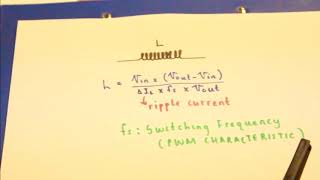 L
L = Vin x (Vout - Vin)
ΔIL x fs x Vout
ripple current
fs : Switching Frequency
(PWM CHARACTERISTIC)